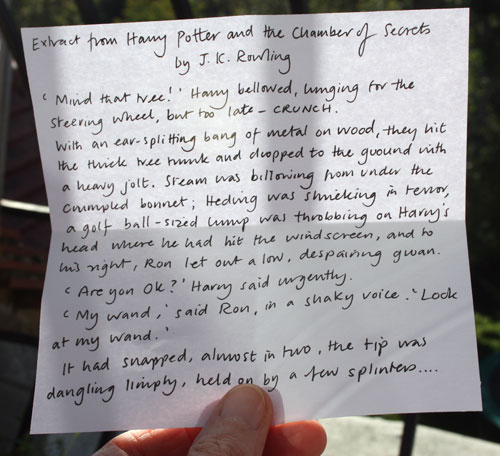 Extract from Harry Potter and the Chamber of Secrets
by J. K. Rowling
‘Mind that tree!’ Harry bellowed, lunging for the
steering wheel, but too late – CRUNCH.
With an ear-splitting bang of metal on wood, they hit
the thick tree trunk and dropped to the ground with
a heavy jolt. Steam was billowing from under the
crumpled bonnet; Hedwig was shrieking in terror,
a golf ball-sized lump was throbbing on Harry's
head where he had hit the windscreen, and to
his right, Ron let out a low, despairing groan.
‘Are you OK?’ Harry said urgently.
‘My wand,’ said Ron, in a shaky voice. ‘Look
at my wand.’
It had snapped, almost in two, the tip was
dangling limply, held on by a few splinters....